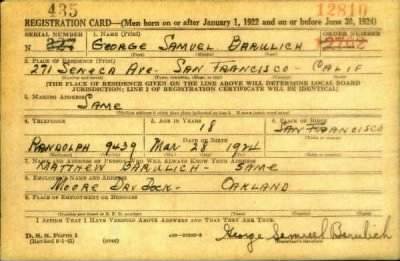 435 12810
REGISTRATION CARD—(Men born on or after January 1, 1922 and on or before June 30, 1924)
SERIAL NUMBER 1. NAME (Print) ORDER NUMBER
N George Samuel Barulich
(First) (Middle) (Last)
2. PLACE OF RESIDENCE (Print)
291 Seneca Ave- San Francisco - Calif
[THE PLACE OF RESIDENCE GIVEN ON THE LINE ABOVE WILL DETERMINE LOCAL BOARD
JURISDICTION; LINE 2 OF REGISTRATION CERTIFICATE WILL BE IDENTICAL]
3. MAILING ADDRESS
Same
4. TELEPHONE 5. AGE IN YEARS 6. PLACE OF BIRTH
18 San Francisco
DATE OF BIRTH
Randolph 9439 Mar 28 1924
7. NAME AND ADDRESS OF PERSON WHO WILL ALWAYS KNOW YOUR ADDRESS
Matthew Barulich - Same
8. EMPLOYER'S NAME AND ADDRESS
Moore Dry Dock - Oakland
9. PLACE OF EMPLOYMENT OR BUSINESS
I AFFIRM THAT I HAVE VERIFIED ABOVE ANSWERS AND THAT THEY ARE TRUE.
D. S. S. Form 1
George Samuel Barulich